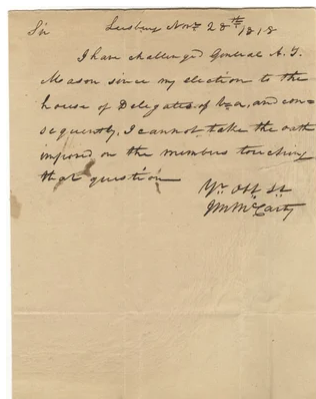 Sir Leesburg Novr 28th 1818
I have challenged General A. T.
Mason since my election to the
house of Delegates of Va, and con-
sequently, I cannot take the oath
imposed on the members touching
that question
Yr. Obt St
JM McCarty